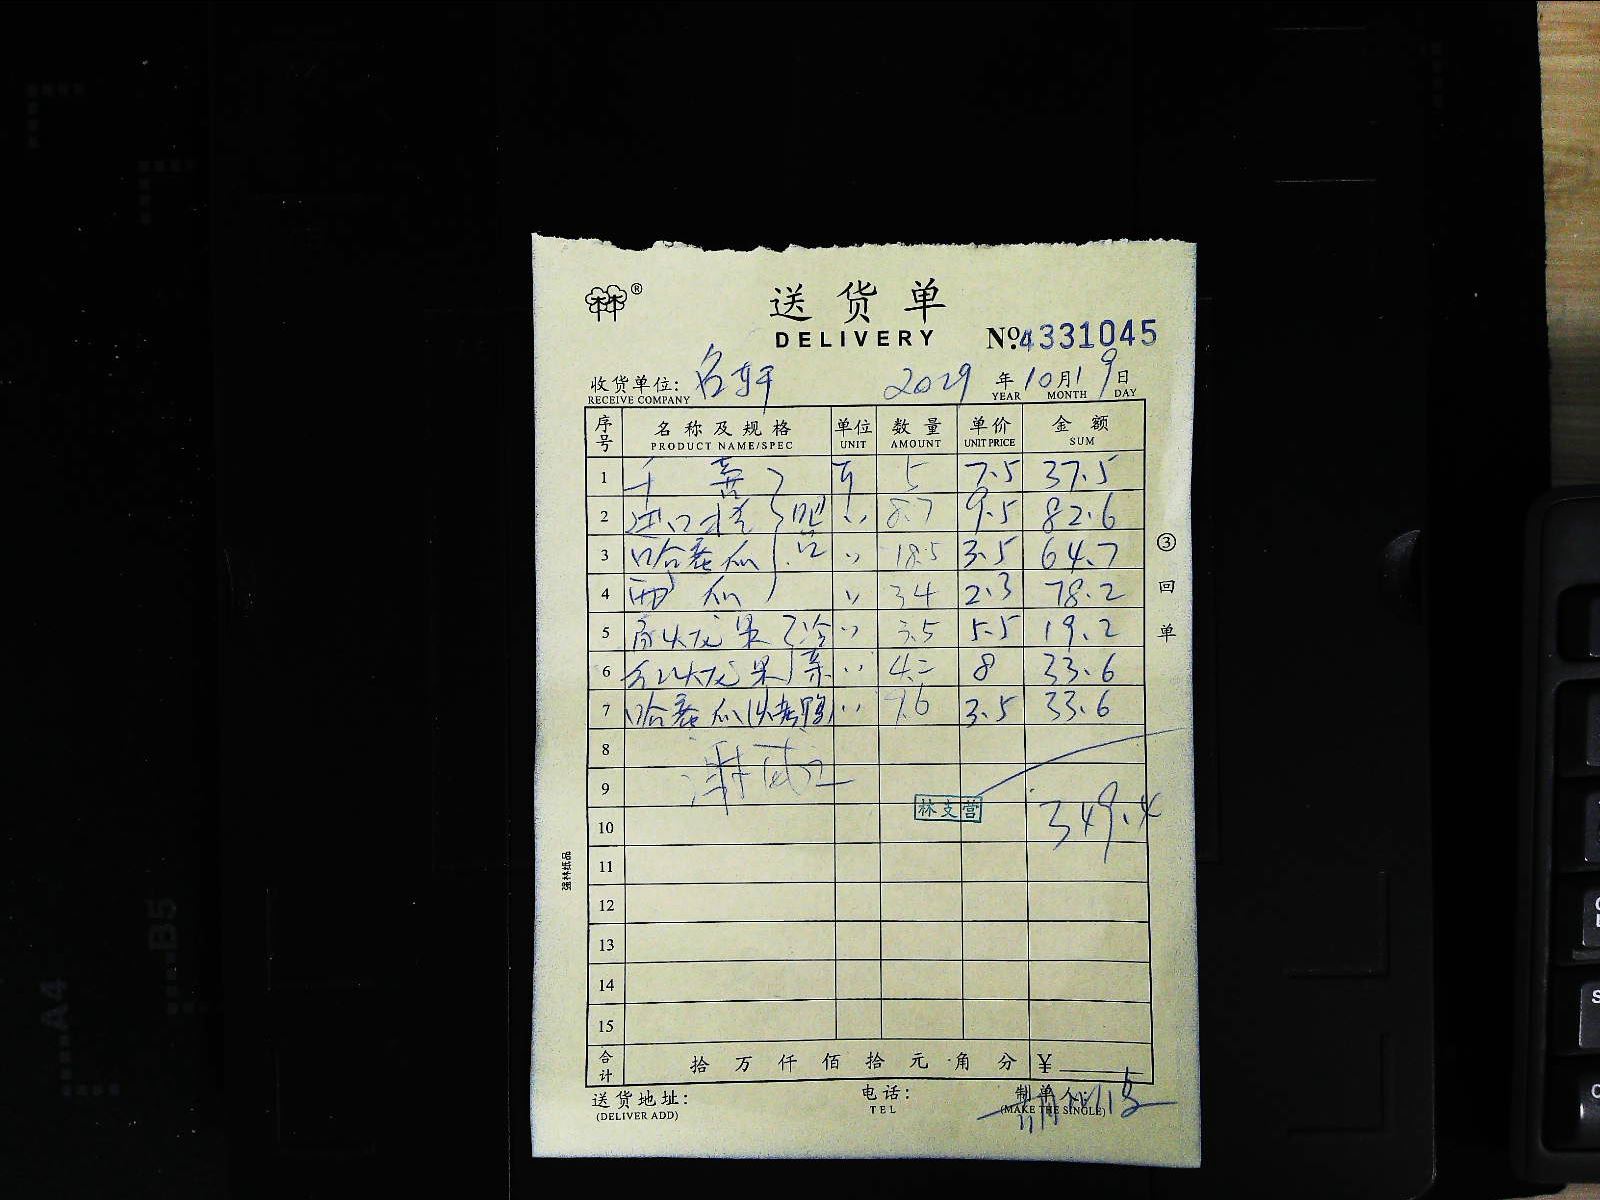 林®
送货单
DELIVERY
No.4331045
收货单位: 名轩 2029 年 10 月 19 日
RECEIVE COMPANY YEAR MONTH DAY
序号 名称及规格 单位 数量 单价 金额
PRODUCT NAME/SPEC UNIT AMOUNT UNIT PRICE SUM
1 千禧 斤 5 7.5 37.5
2 进口橙 吧 〃 8.7 9.5 82.6
3 哈蜜瓜 台 〃 18.5 3.5 64.7
4 西瓜 〃 34 2.3 78.2
5 火龙果 〃 3.5 5.5 19.2
6 红火龙果 〃 4.2 8 33.6
7 哈蜜瓜(烧鸭) 〃 9.6 3.5 33.6
8
9
林支营 349.4
10
11
12
13
14
15
合计 拾 万 仟 佰 拾 元 角 分 ¥
送货地址: 电话: 制单
(DELIVER ADD) TEL (MAKE THE SINGLE)
③回单
强林纸品
A4
B5